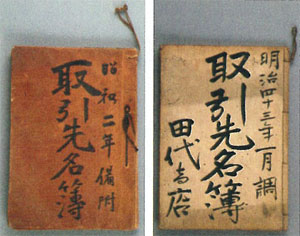 昭和二年備附
取引先名簿
明治四十三年一月調
取引先名簿
田代吉店